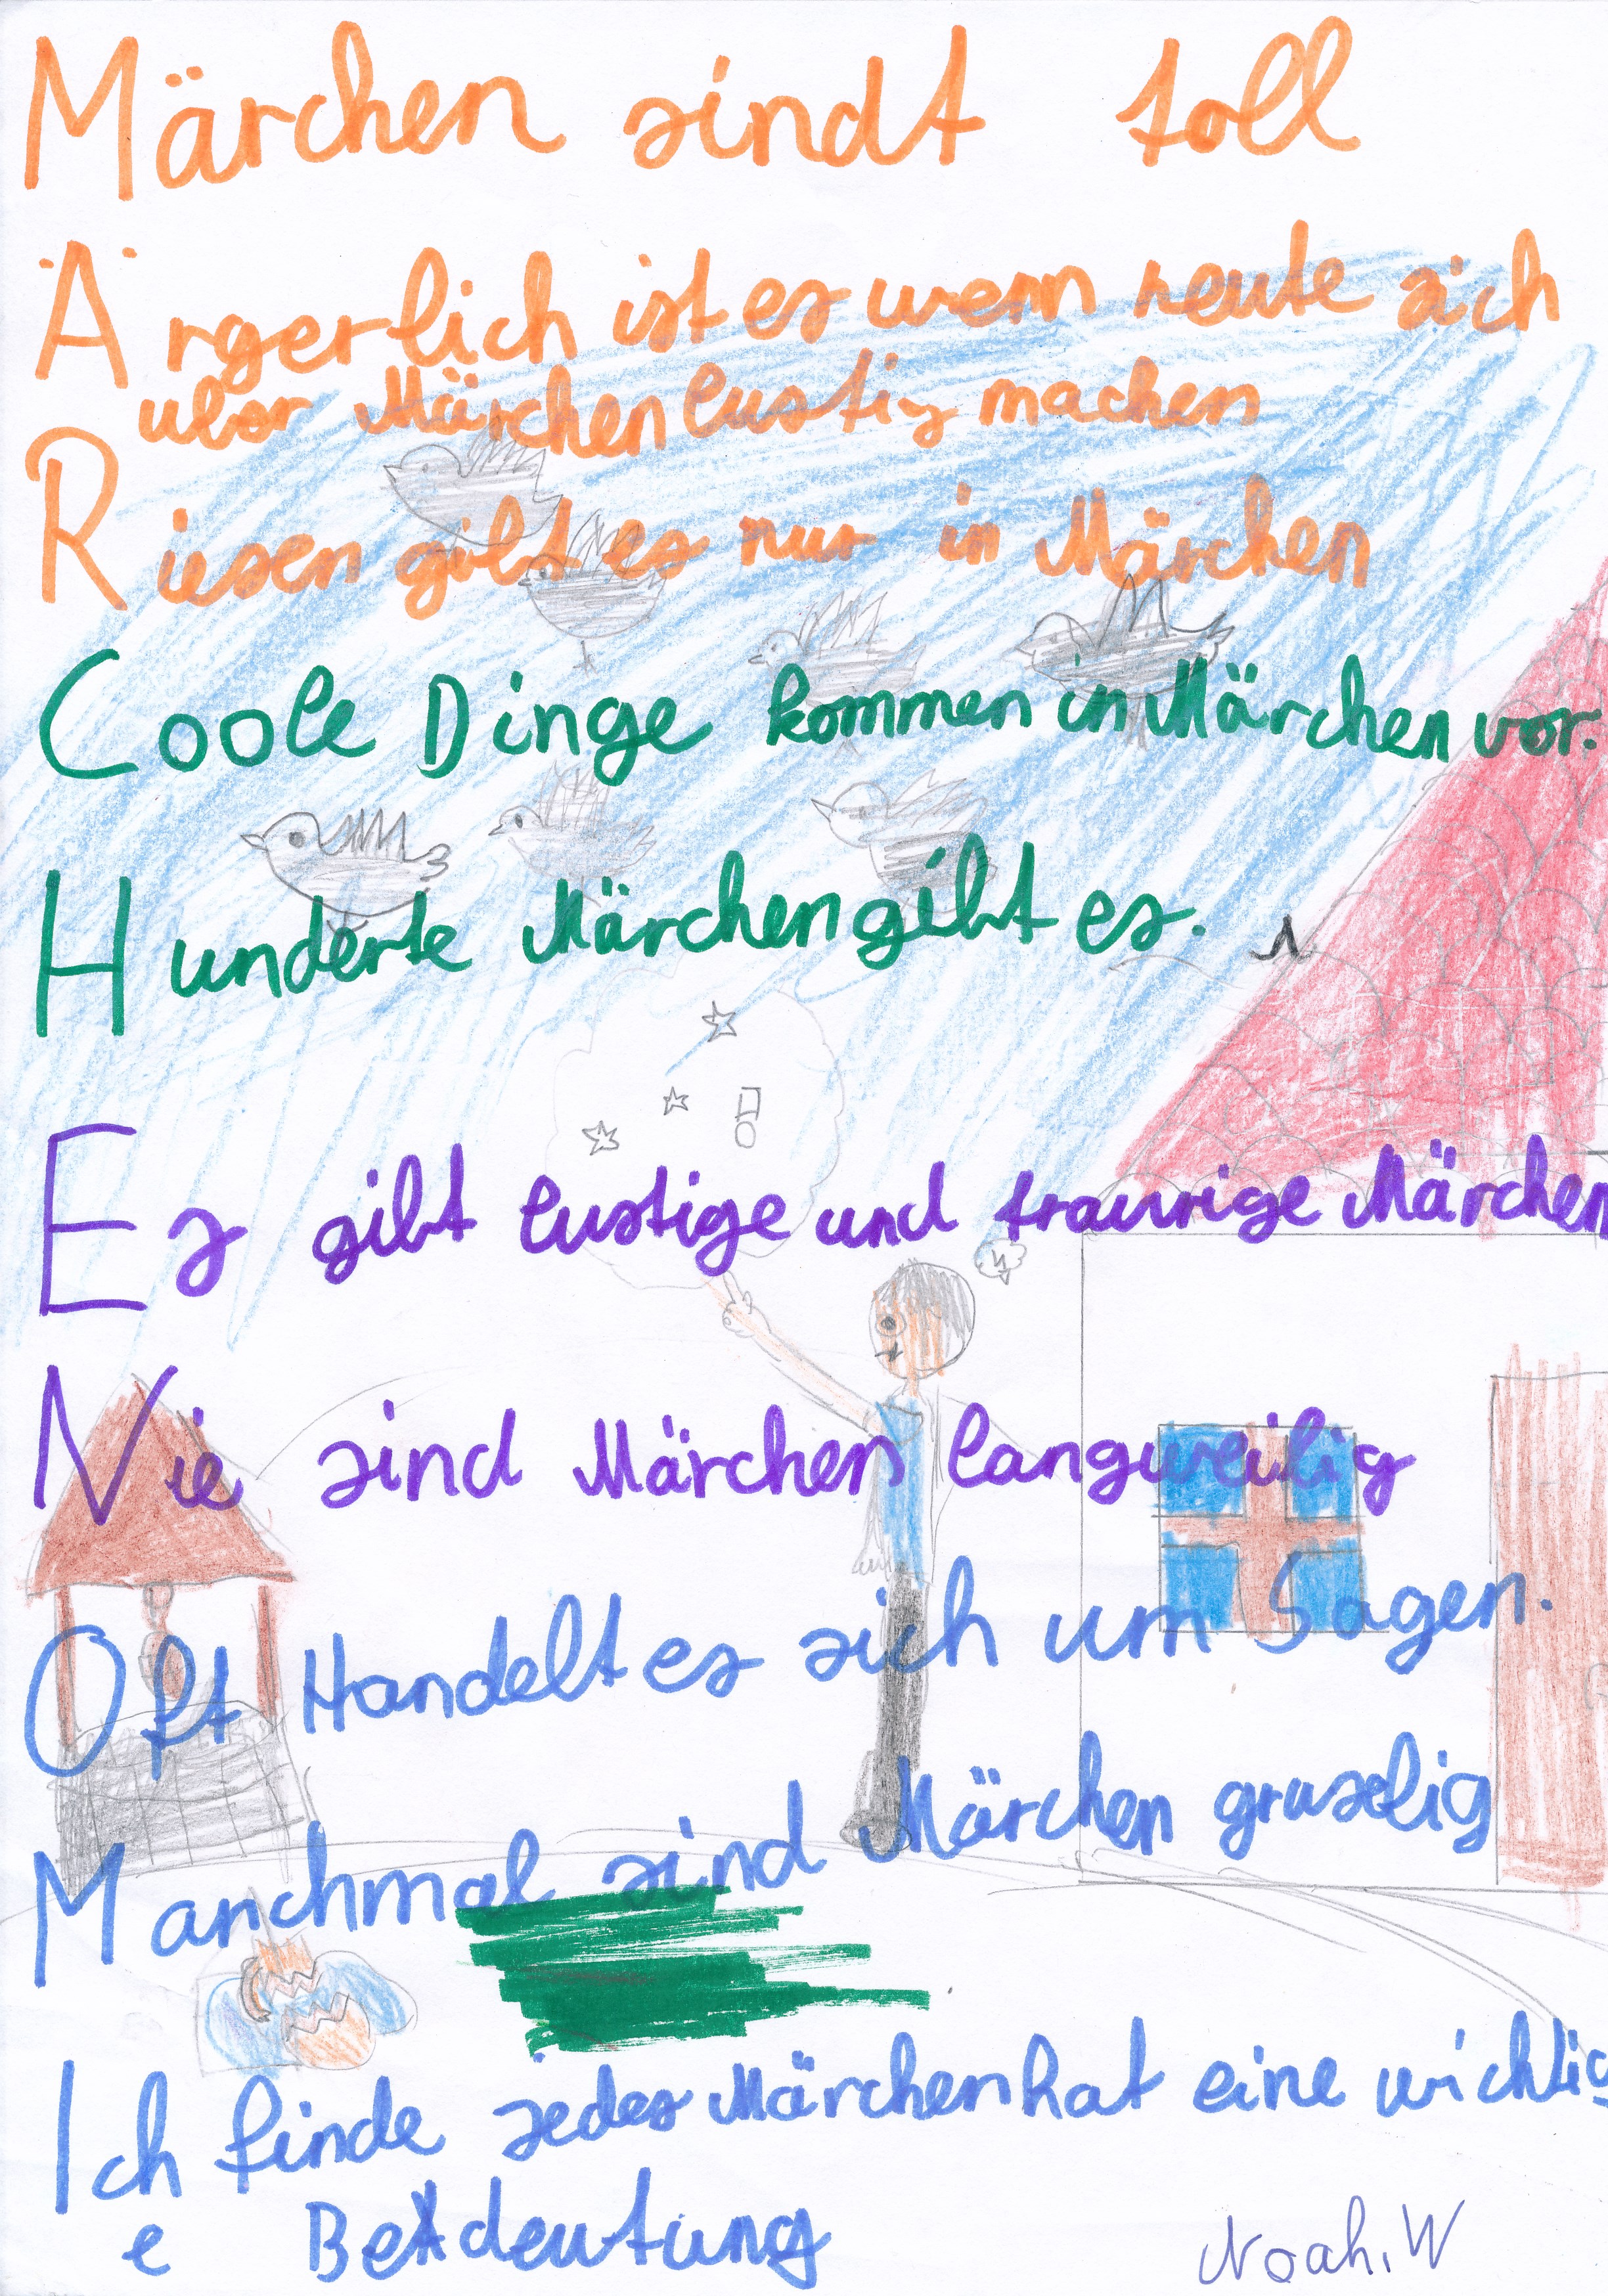 Märchen sindt toll
Ärgerlich ist es wenn heute sich
über Märchen lustig machen
Riesen gibt es nur in Märchen
Coole Dinge kommen in Märchen vor.
Hunderte Märchen gibt es.
Es gibt lustige und traurige Märchen
Nie sind Märchen langweilig
Oft Handelt es sich um Sagen.
Manchmal sind Märchen gruselig
Ich finde jedes Märchen hat eine wichtig
e Bedeutung
Noah.W